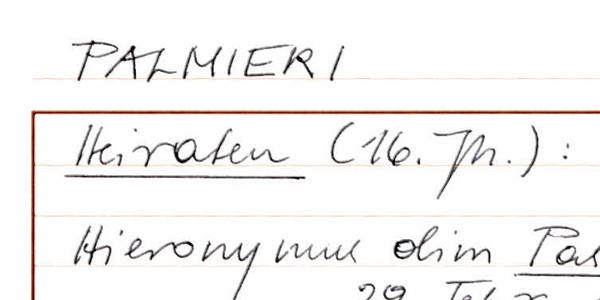 PALMIERI
Heiraten (16. Jh.):
Hieronymus olim
29